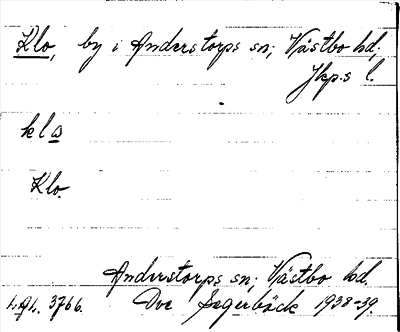 Klo, by i Anderstorps sn; Västbo hd;
Jkp.s l.
kla
Klo.
Anderstorps sn; Västbo hd.
3766. Ove Segerbäck 1938-39.